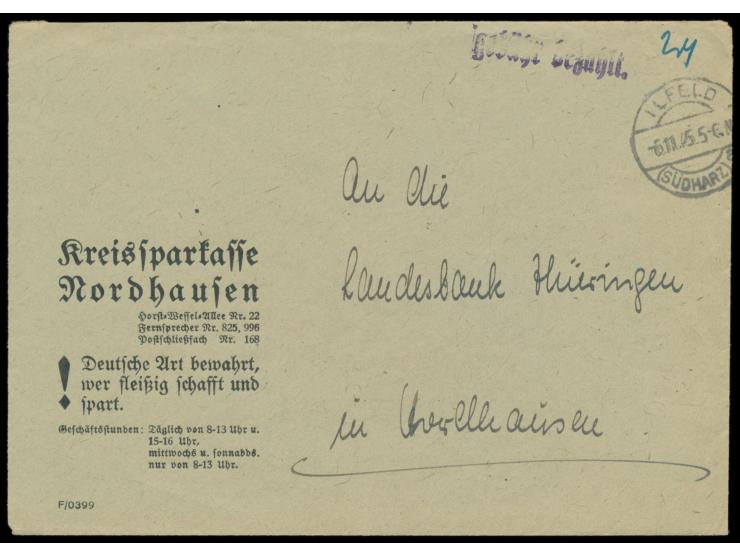 Gebühr bezahlt.
24
ILFELD
-6.11.45.5-6.N
(SÜDHARZ)
a
An die
Landesbank Thüringen
in Nordhausen
Kreissparkasse
Nordhausen
Horst-Wessel-Allee Nr. 22
Fernsprecher Nr. 825, 996
Postschließfach Nr. 168
! Deutsche Art bewahrt,
wer fleißig schafft und
spart.
Geschäftsstunden: Täglich von 8-13 Uhr u.
15-16 Uhr,
mittwochs u. sonnabds.
nur von 8-13 Uhr.
F/0399